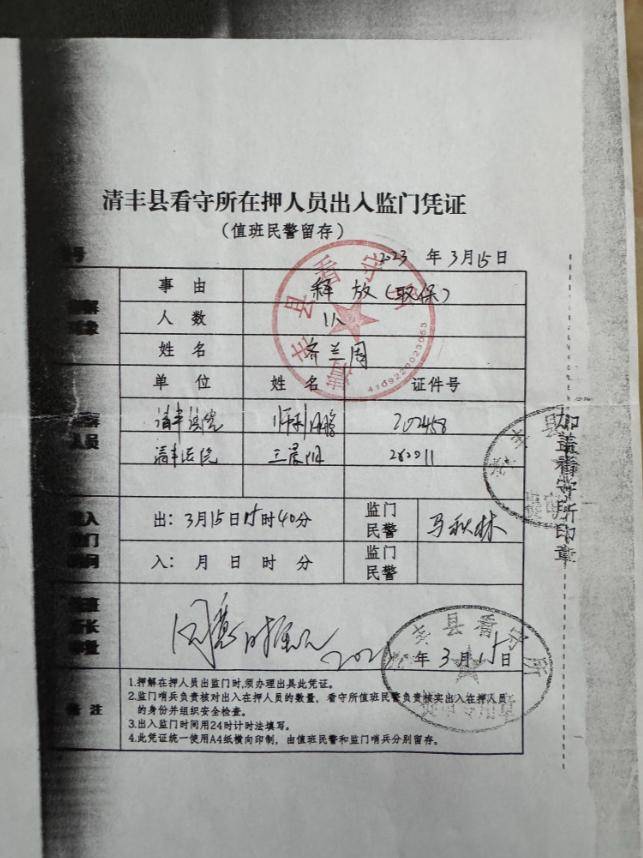 清丰县看守所在押人员出入监门凭证
（值班民警留存）
号 2023 年 3 月 15 日
事 由 释放（取保）
人 数
姓 名 兰周
单 位 姓 名 证件号
清丰法院 202458
清丰法院
出：3月15日15时40分 监门民警 马秋林
入： 月 日 时 分 监门民警
同意
年 3 月 15 日
备 注
1.押解在押人员出监门时,须办理出具此凭证。
2.监门哨兵负责核对出入在押人员的数量，看守所值班民警负责核实出入在押人员
的身份并组织安全检查。
3.出入监门时间用24时计时法填写。
4.此凭证统一使用A4纸横向印制，由值班民警和监门哨兵分别留存。
加盖看守所印章
清丰县看守所
4109220023065